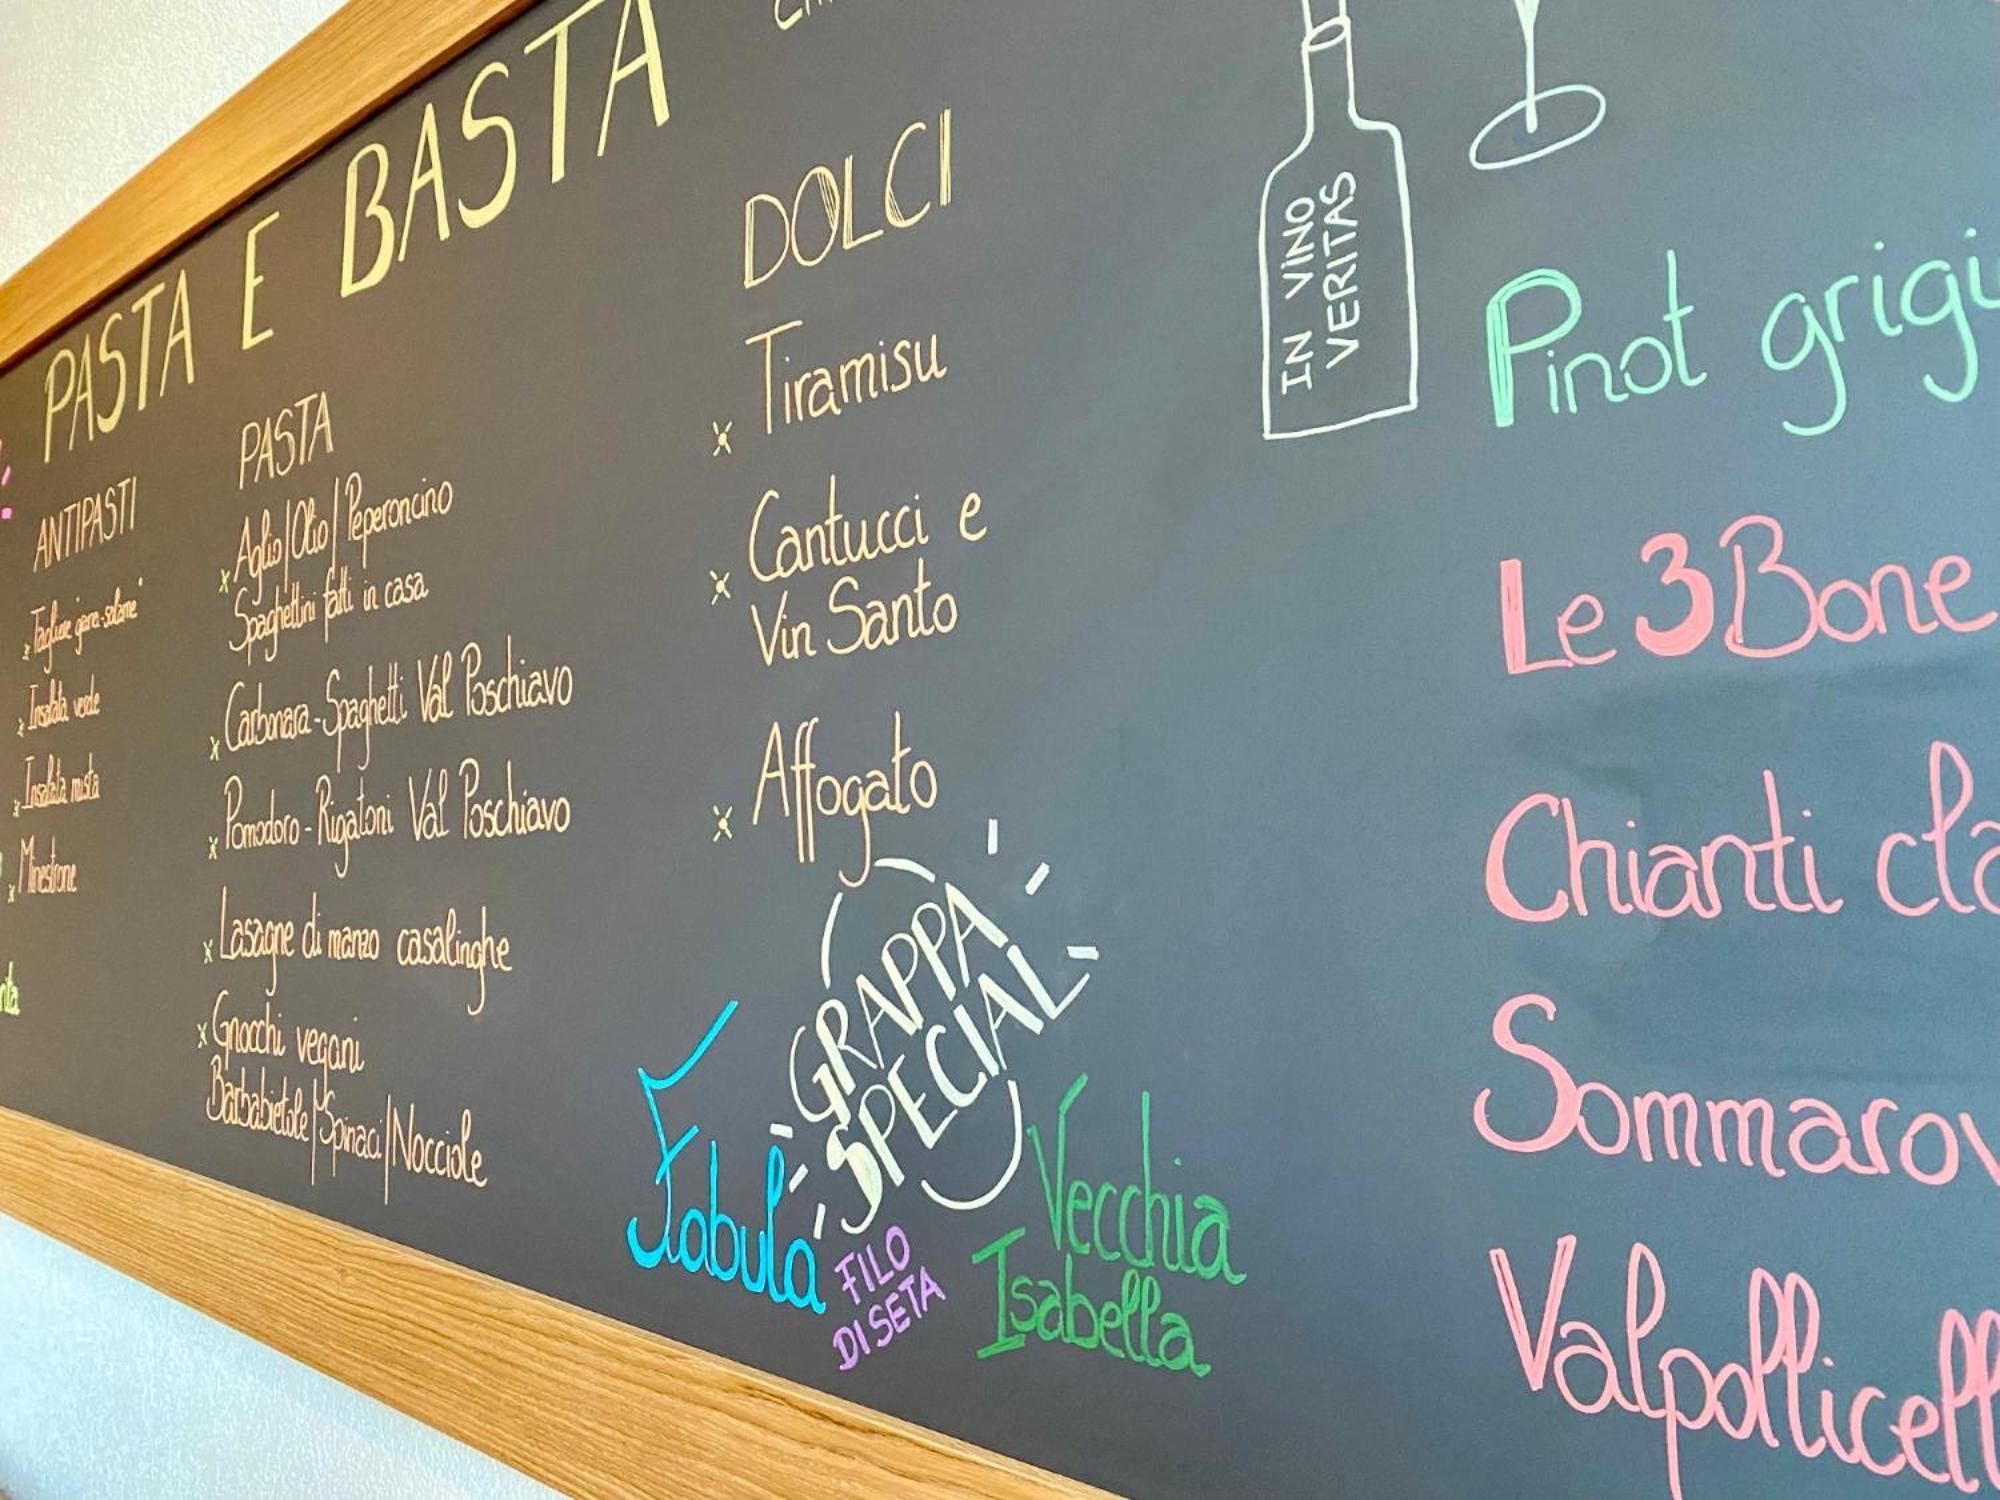 PASTA E BASTA
ANTIPASTI
Insalata verde
Insalata mista
Minestrone
PASTA
Aglio/Olio/Peperoncino
Spaghettini fatti in casa
Carbonara-Spaghetti Val Poschiavo
Pomodoro-Rigatoni Val Poschiavo
Lasagne di manzo casalinghe
Gnocchi vegani
Barbabietole/Spinaci/Nocciole
DOLCI
Tiramisu
Cantucci e
Vin Santo
Affogato
GRAPPA
SPECIAL
Fabula
FILO
DI SETA
Vecchia
Isabella
IN VINO
VERITAS
Pinot grigi
Le 3 Bone
Chianti cla
Sommarov
Valpollicell